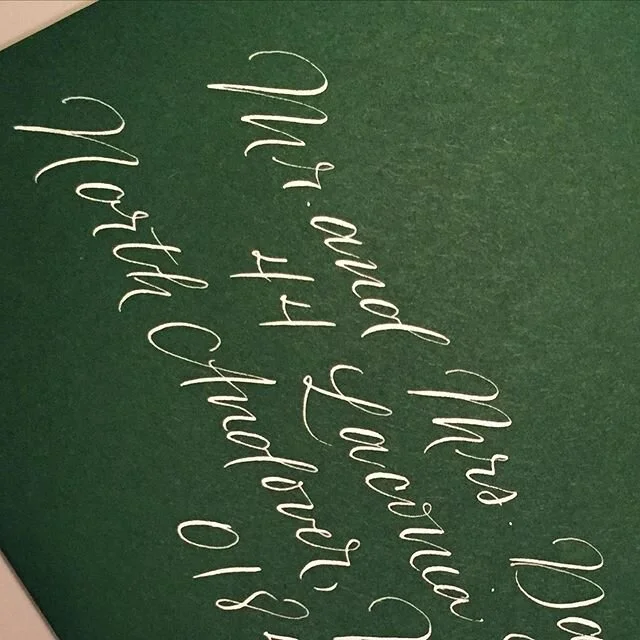 Mr. and Mrs.
44 Laconia
North Andover,
018